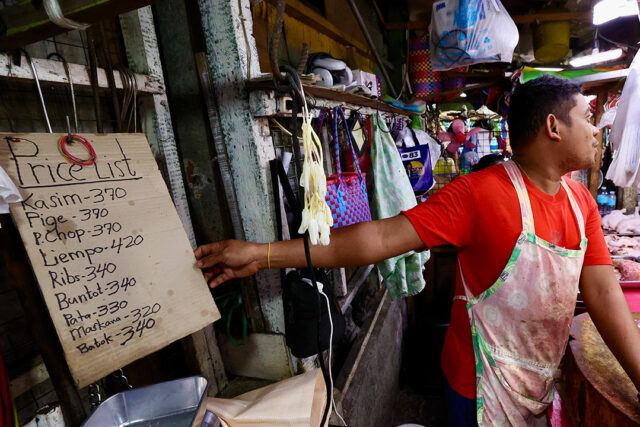 Price List
Kasim-370
Pige-370
P.Chop-370
Liempo-420
Ribs-340
Buntot-340
Pata-330
Maskara-320
Batok-340
83